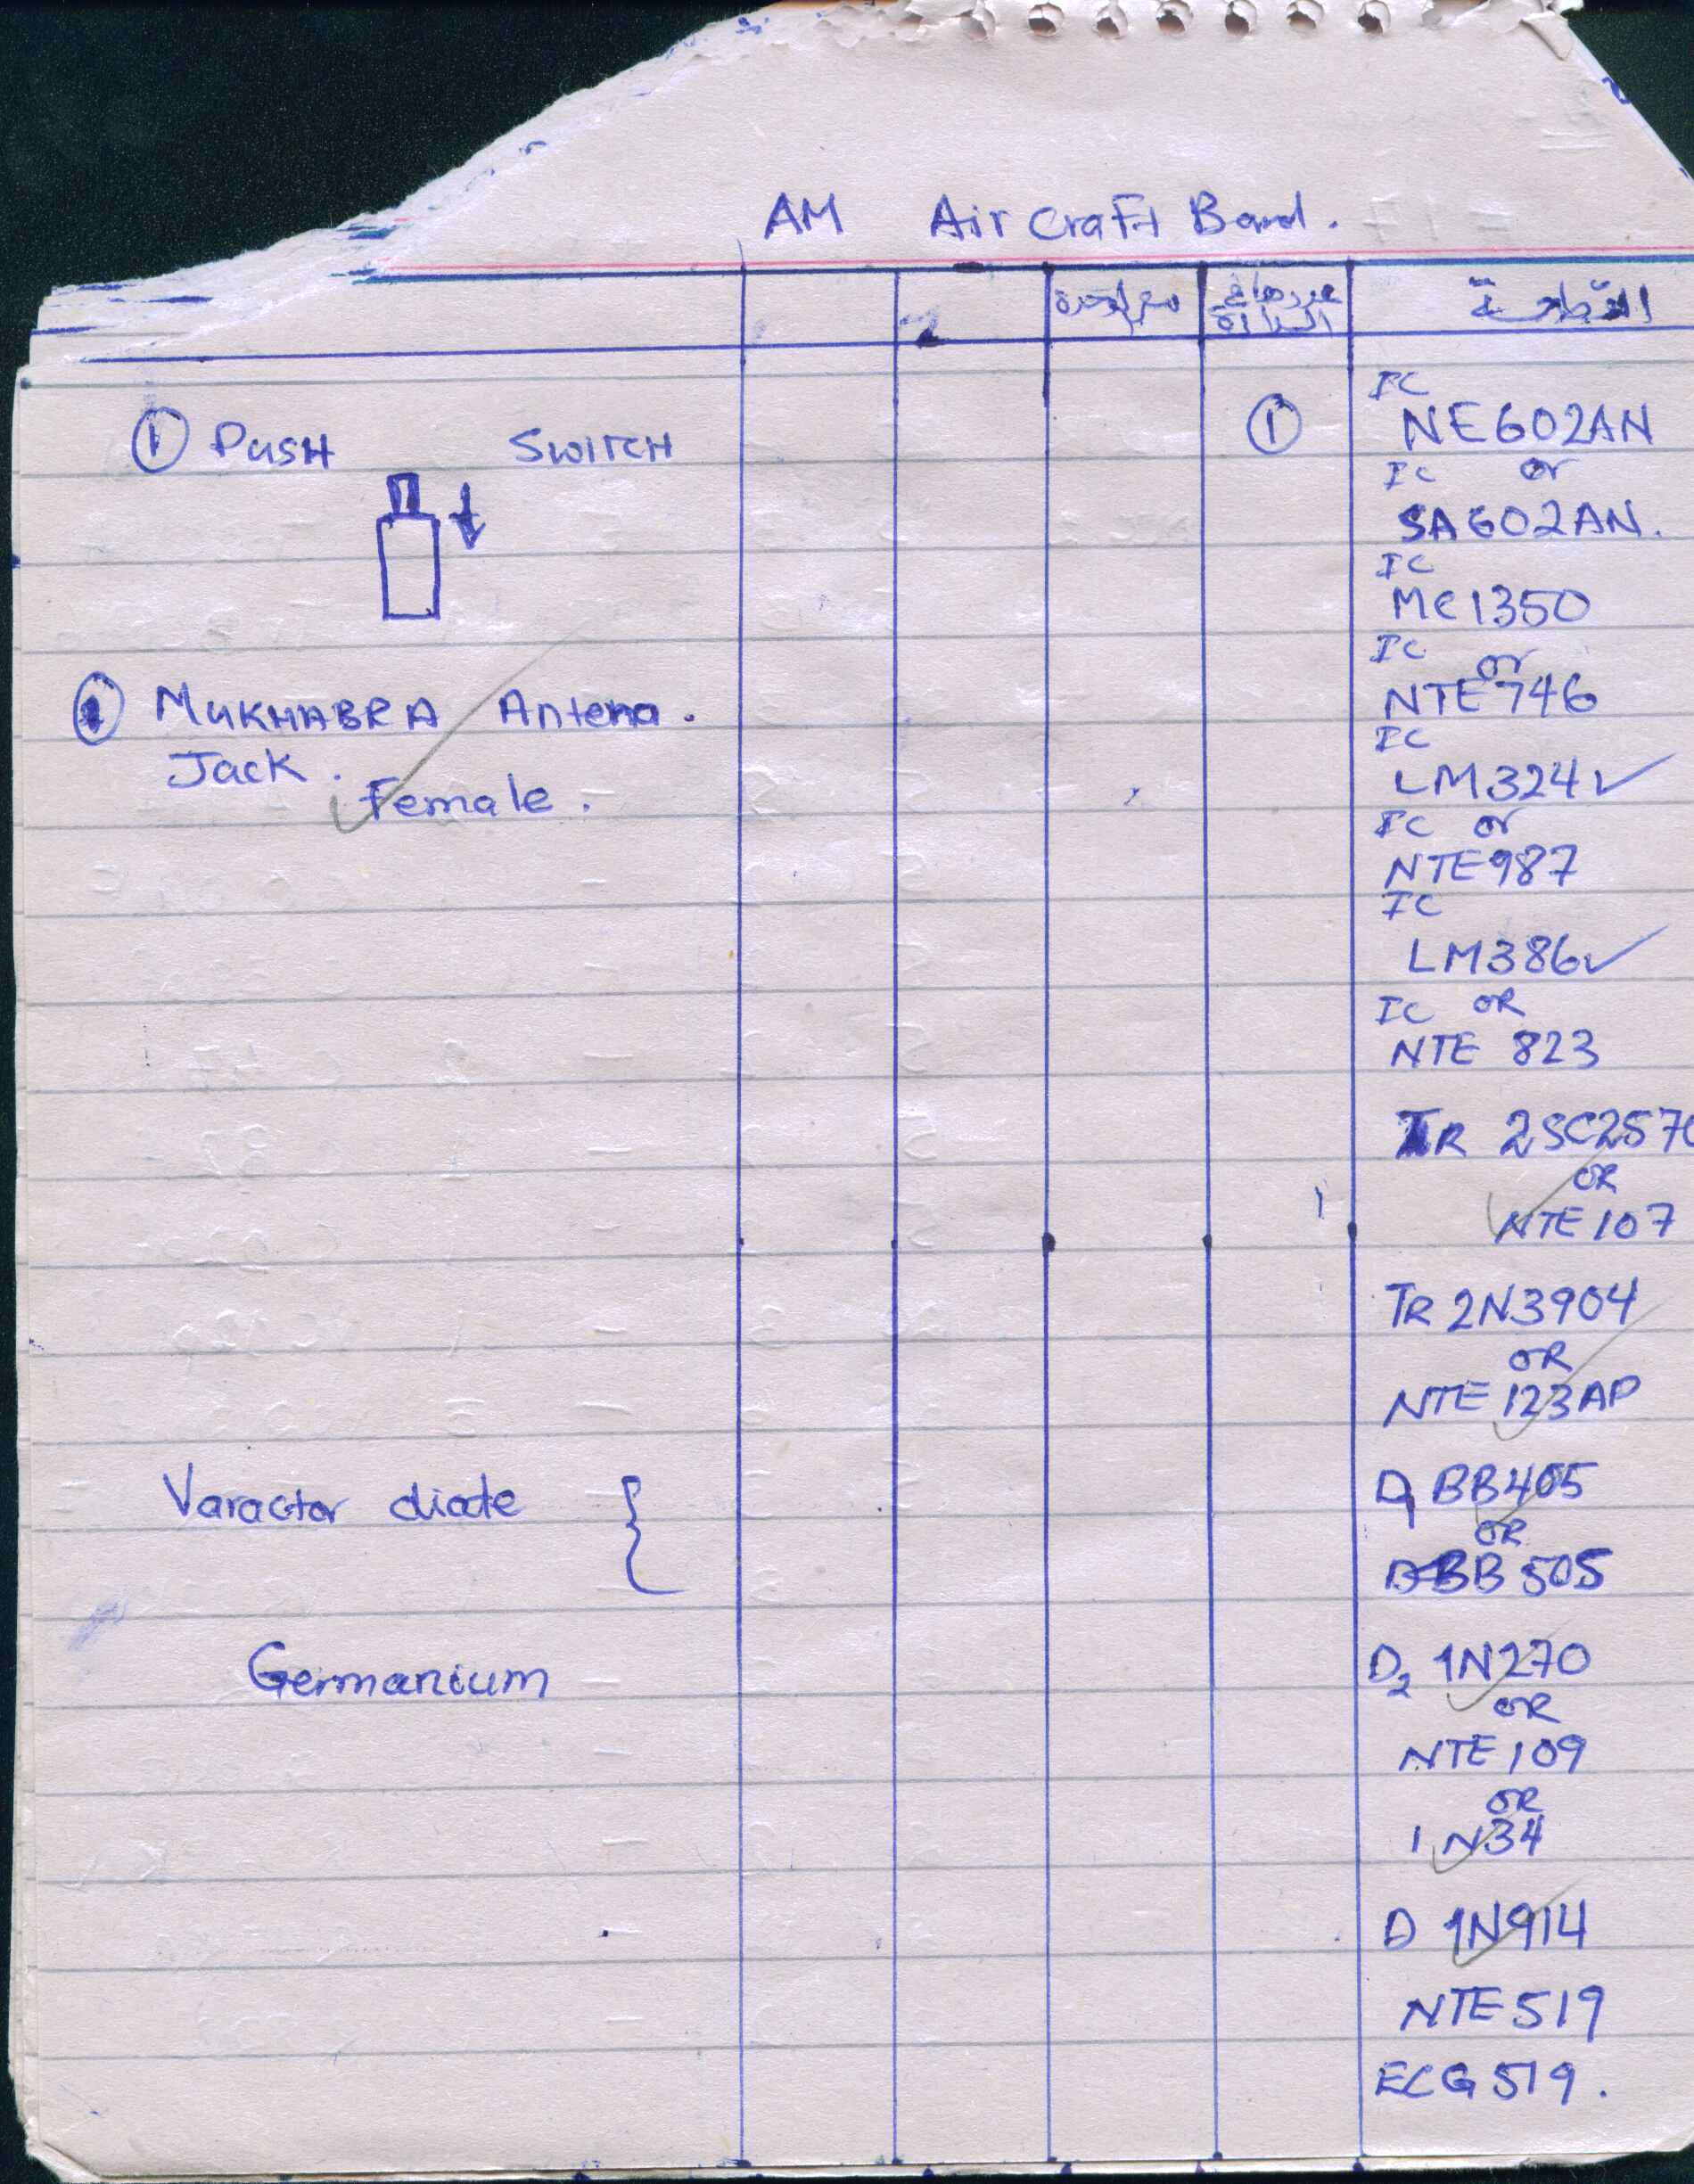 AM Air Craft Band.
القطعة
① PUSH SWITCH
①
IC
NE602AN
IC or
SA602AN.
IC
MC1350
IC or
NTE746
IC
LM324 ✓
IC or
NTE987
IC
LM386 ✓
IC OR
NTE 823
MUKHABRA Antena.
Jack.
Female.
TR 2SC2570
OR
NTE 107
TR 2N3904
OR
NTE 123AP
Varactor diode
D1 BB405
OR
BB 505
Germanium
D2 1N270
OR
NTE 109
OR
1N34
D 1N914
NTE 519
ECG 519.